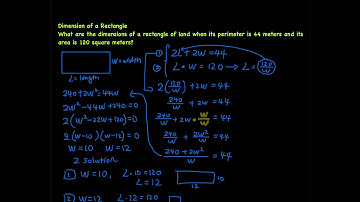 Dimension of a Rectangle
What are the dimensions of a rectangle of land when its perimeter is 44 meters and its
area is 120 square meters?
W=width
L=length
① 2L+2W=44
② L·W=120 → L=120/W
2(120/W)+2W=44
240/W + 2W = 44
240/W + 2W · W/W = 44
240/W + 2W²/W = 44
240+2W²/W = 44
240+2W²=44W
2W²-44W+240=0
2(W²-22W+120)=0
2(W-10)(W-12)=0
W=10 W=12
2 Solution
1 W=10, L·10=120
L=12
10
12
2 W=12 L·12=120